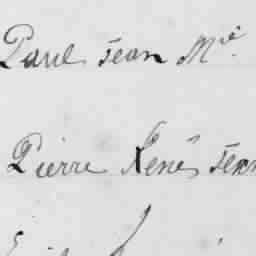 Paul Jean Mie
Pierre René Jean